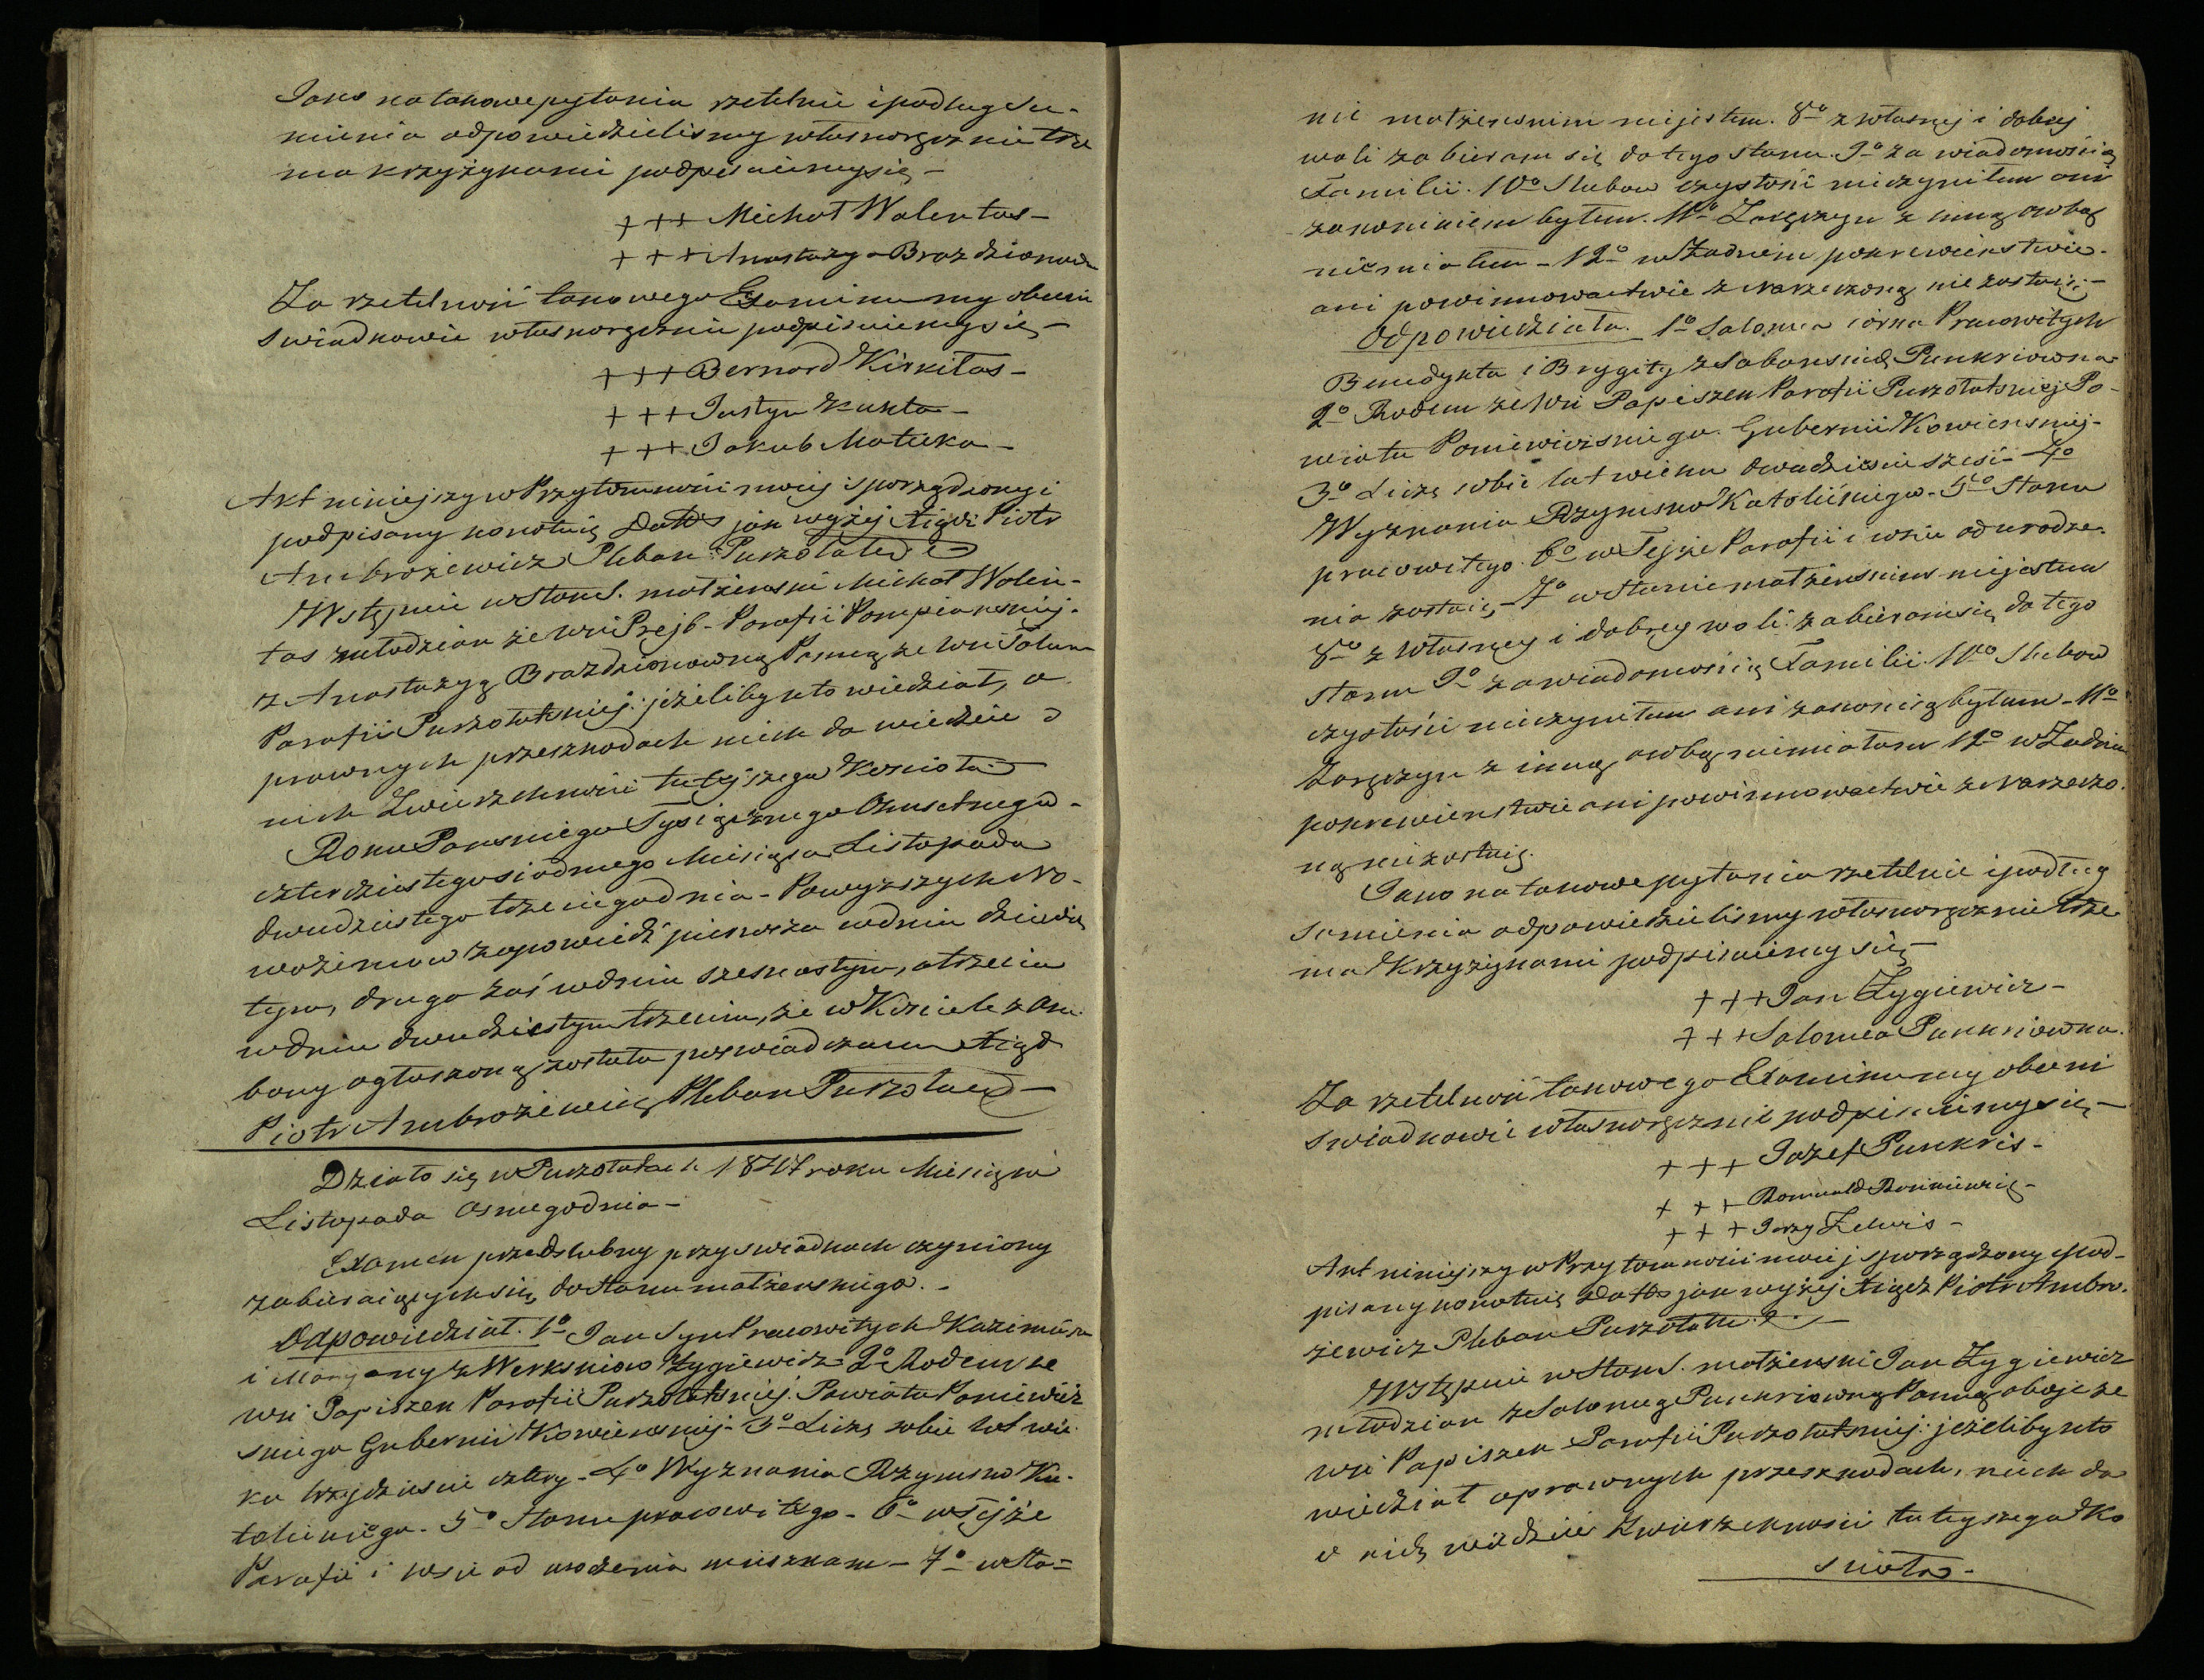 Jako na takowe pytania rzetelnie i podług Su-
mienia odpowiedzieliśmy własnoręcznie trze
ma krzyżykami podpisuiemy się –
+++ Michał Walentas –
+++ Anastazya Brazdzionowna
Za rzetelność takowego Examinu my obecni
swiadkowie własnoręcznie podpisuiemy się –
+++ Bernard Kirkitas –
+++ Justyn Kukta –
+++ Jakub Matuka –
Akt niniejszy w Przytomności moiej sporządzony i
podpisany konotuię Datto jak wyżej Xiądz Piotr
Ambrożewicz Pleban Puszołatski
Wstępuie w Stan S. małżenski Michał Walen-
tas młodzian ze wsi Prejb – Parafii Pompianskiej
z Anastazyą Brazdzionowną Panną ze wsi Tolun
Parafii Puszołatskiej: jeżeliby kto wiedział, o
prawnych przeszkodach niech da wiedzieć o
nich Zwierzchności tutejszego Kościoła
Roku Panskiego Tysiącznego Osmsetnego
czterdziestego siódmego Miesiąca Listopada
dwudziestego trzeciego dnia – Powyższych No-
wożeńcow zapowiedź pierwsza w dniu dziewią
tym, druga zaś w dniu szesnastym, a trzecia
w dniu dwudziestym trzecim, że w Kościele z Am-
bony ogłoszoną została poswiadczam Xiądz
Piotr Ambrożewicz Pleban Puszołatski –
Działo się w Puszołatach 1847 roku Miesiąca
Listopada Osmego dnia –
Examen przedslubny przy swiadkach czyniony
zabieraiących się do Stanu małżenskiego. –
Odpowiedział. 1o Jan Syn Pracowitych Kazimierza
i Maryanny z Werksniow Zygiewicz 2o Rodem ze
wsi Papiszek Parafii Puszołatskiej Powiatu Poniewież
skiego Gubernii Kowienskiej – 3o Liczę sobie lat wie-
ku trzydzieście cztery – 4o Wyznania Rzymsko Ka-
tolickiego – 5o Stanu pracowitego – 6o w tejże
Parafii i wsie od urodzenia mieszkam – 7o w Sta=
nie małżenskim niejestem. 8o z własnej i dobrej
woli zabieram się do tego stanu. 9o za wiadomością
Familii. 10o Slubow czystości nieczyniłem ani
zakonnikiem byłem. 11o Zaręczyn z inną osobą
niemiałem – 12o w Żadnem pokrewienstwie –
ani powinnowactwie z Narzeczoną nie zostaię –
Odpowiedziała. 1o Salomea córka Pracowitych
Benedykta i Brygity z Sabanskich Punkriowna
2o Rodem ze wsi Papiszek Parafii Puszołatskiej Po-
wiatu Poniewieżskiego Gubernii Kowienskiej –
3o Liczę sobie lat wieku dwadzieście szesć – 4o
Wyznania Rzymsko Katolickiego – 5o Stanu
pracowitego. 6o w Tejże Parafii i wsie od urodze-
nia zostaię – 7o w Stanie małżenskim niejestem
8o z Własnej i dobrej woli zabieram się do tego
stanu 9o za wiadomością Familii. 10o Slubow
czystości nieczyniłam ani zakonnicą byłam – 11o
Zaręczyn z inną osobą niemiałam 12o w Żadnem
pokrewienstwie ani powinnowactwie z Narzeczo-
ną niezostaię.
Jako na takowe pytania rzetelnie i podług
sumienia odpowiedzieliśmy własnoręcznie trze
ma Krzyżykami podpisuiemy się –
+++ Jan Zygiewicz –
+++ Salomea Punkriowna.
Za rzetelność takowego Examinu my obecni
swiadkowie własnoręcznie podpisuiemy się –
+++ Jozef Punkris –
+++ Romuald Rosinkiewicz –
+++ Jerzy Zelwis –
Akt niniejszy w Przytomności moiej sporządzony i pod-
pisany konotuię Datto jak wyżej Xiądz Piotr Ambro-
żewicz Pleban Puszołatski –
Wstępuie w Stan S. małżenski Jan Zygiewicz
młodzian z Salomeą Punkriowną Panną oboje ze
wsi Papiszek Parafii Puszołatskiej: jeżeliby kto
wiedział o prawnych przeszkodach, niech da
o nich wiedzieć Zwierzchności tutejszego Ko
ścioła –